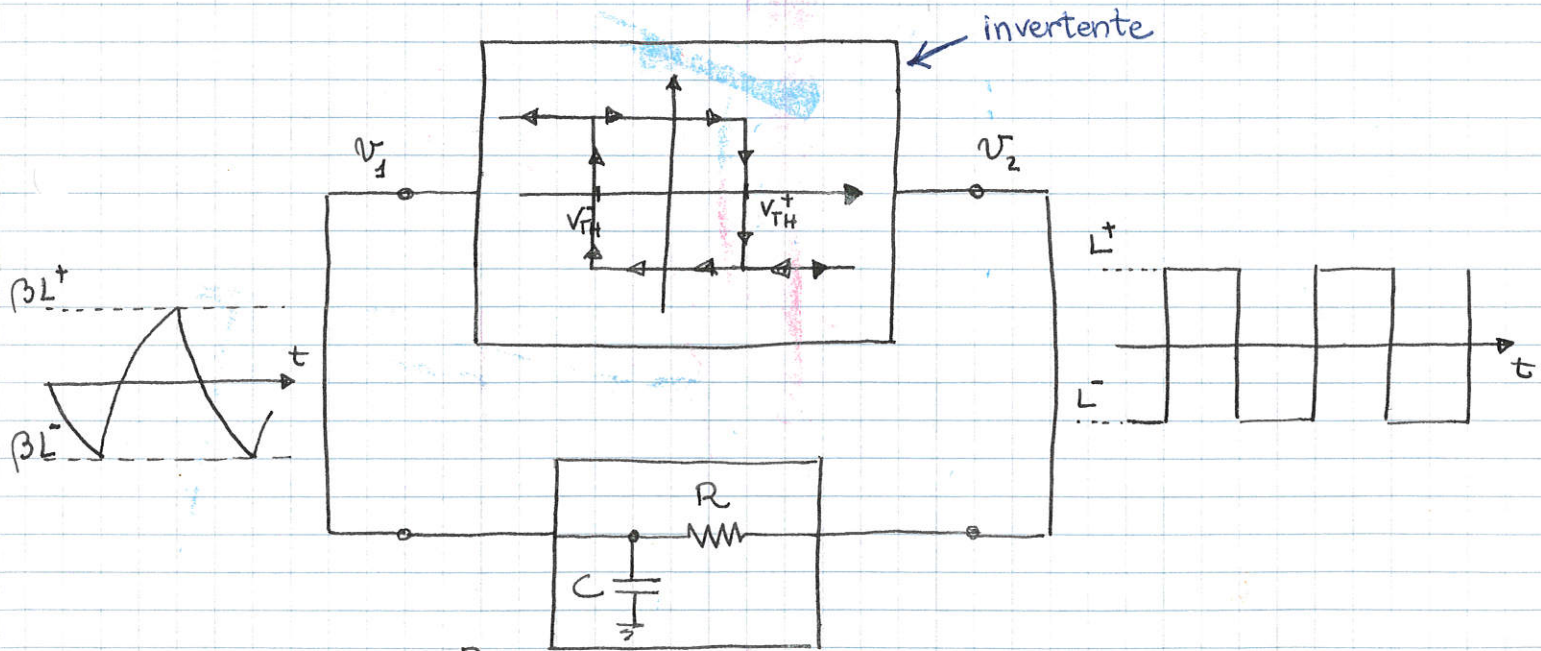 invertente
v₁
v₂
V_TH⁻
V_TH⁺
L⁺
βL⁺
t
t
L⁻
βL⁻
R
C